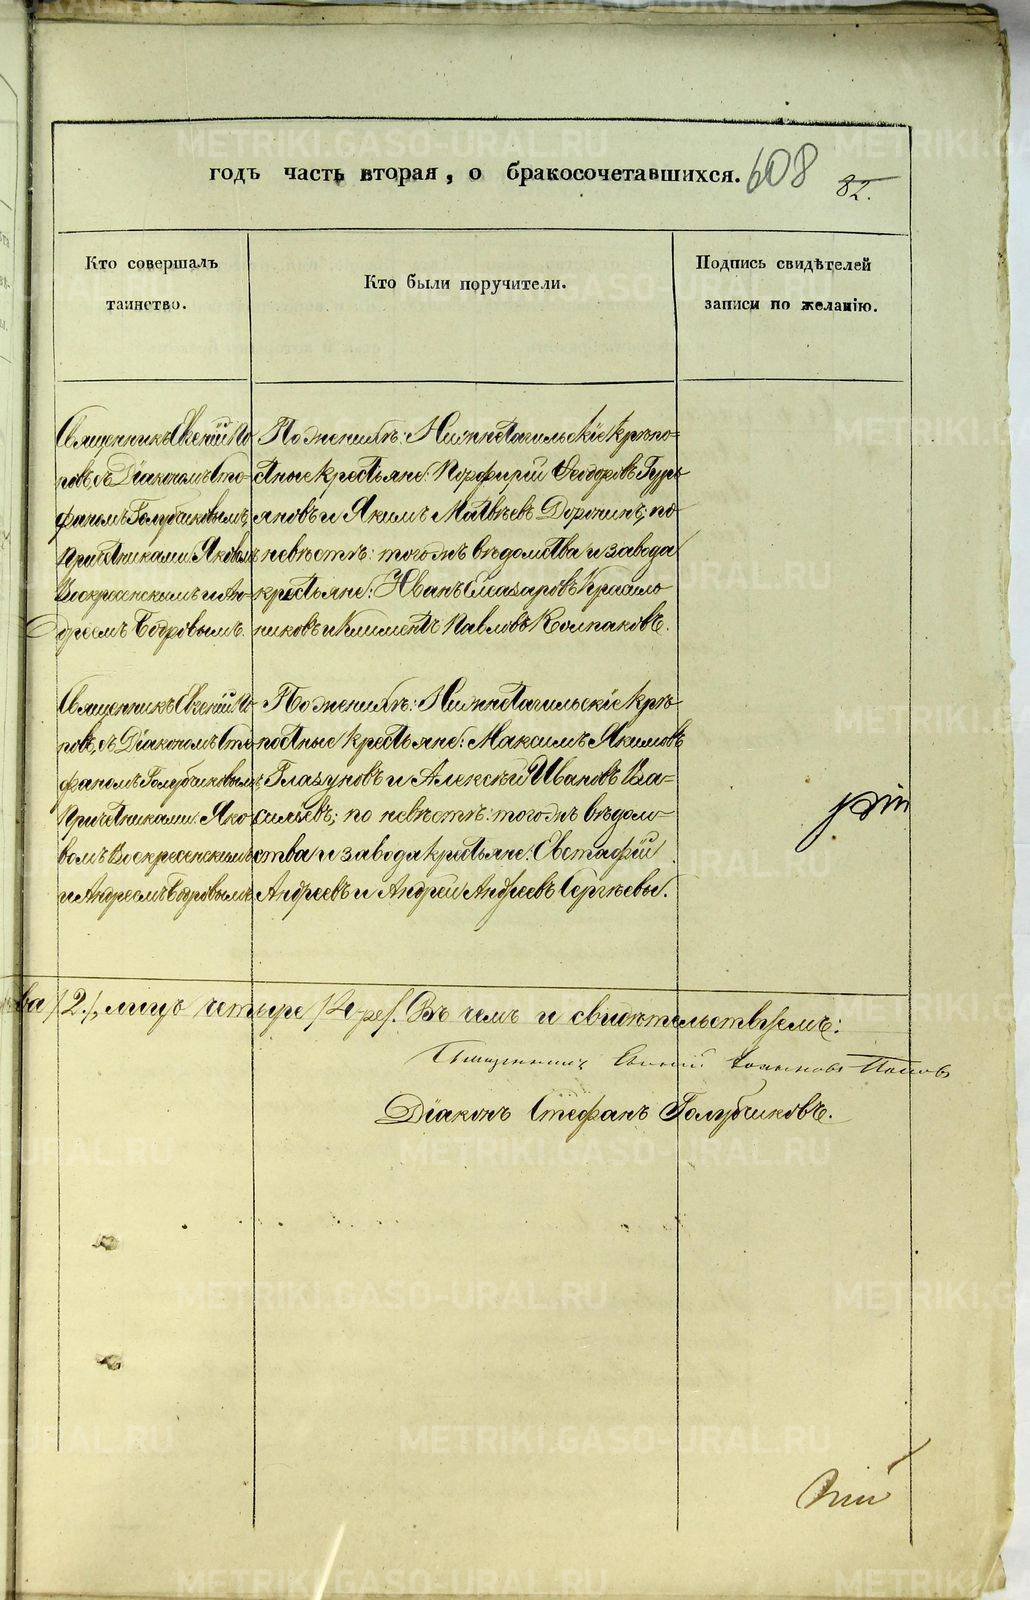 годъ часть вторая, о бракосочетавшихся. 608 82.
Кто совершалъ
таинство.
Кто были поручители.
Подпись свидѣтелей
записи по желанію.
Священникъ Евгеній По-
повъ, съ Діакономъ Сте-
фаномъ Голубчиковымъ,
Причетниками: Яковомъ
Воскресенскимъ и Ан-
дреемъ Бодровымъ.
По женихѣ: Нижнетагильскіе крѣпо-
стные крестьяне: Порфирій Ѳеодоровъ Гурь-
яновъ и Якимъ Матвѣевъ Дорочинъ; по
невѣстѣ: тогожъ вѣдомства и завода
крестьяне: Иванъ Елеазаровъ Красило-
никовъ и Климентъ Павловъ Колпаковъ.
Священникъ Евгеній По-
повъ, съ Діакономъ Сте-
фаномъ Голубчиковымъ,
Причетниками: Яко-
вомъ Воскресенскимъ
и Андреемъ Бодровымъ.
По женихѣ: Нижнетагильскіе крѣ-
постные крестьяне: Максимъ Якимовъ
Глазуновъ и Алексѣй Ивановъ Ва-
сильевъ; по невѣстѣ: тогожъ вѣдом-
ства и завода крестьяне: Евстафій
Андреевъ и Андрей Андреевъ Сергѣевы.
ва /2./, лицъ четыре /4-ре/. Въ чемъ и свидѣтельствуемъ:
Священникъ Евгеній Поповъ
Діаконъ Стефанъ Голубчиковъ.
METRIKI.GASO-URAL.RU